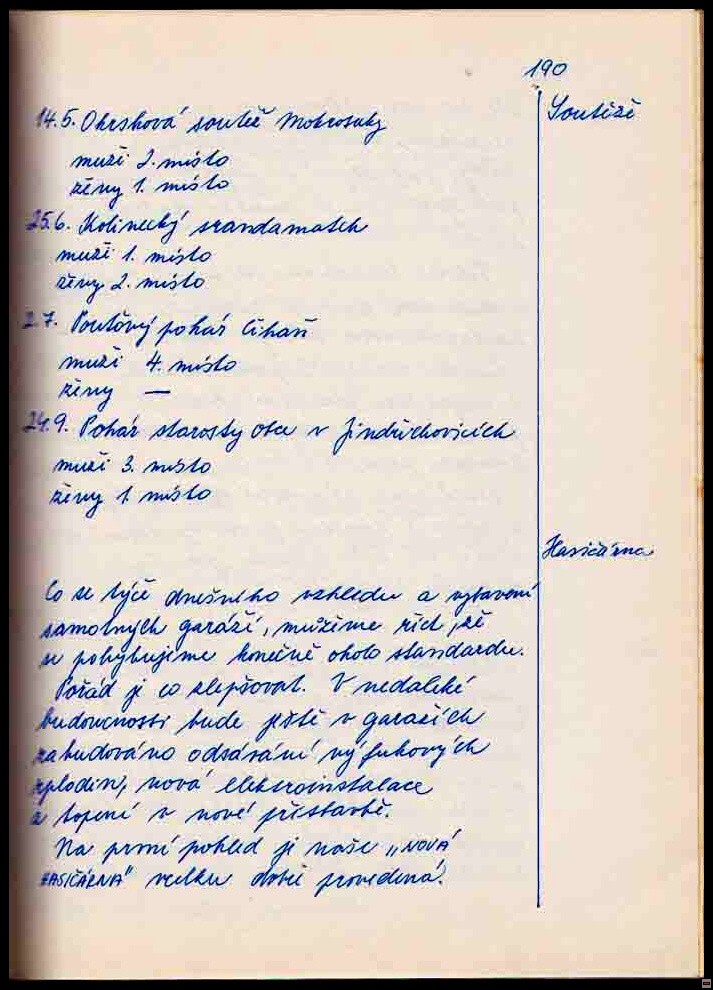 190
Soutěže
14.5. Okrsková soutěž Mokrosuky
muži 2. místo
ženy 1. místo
25.6. Kolinecký srandamatch
muži 1. místo
ženy 2. místo
2.7. Pouťový pohár Čihaň
muži 4. místo
ženy —
24.9. Pohár starosty obce v Jindřichovicích
muži 3. místo
ženy 1. místo
Hasičárna
Co se týče dnešního vzhledu a vybavení
samotných garáží, můžeme říct, že
se pohybujeme konečně okolo standardu.
Pořád je co zlepšovat. V nedaleké
budoucnosti bude ještě v garážích
zabudováno odsávání výfukových
zplodin, nová elektroinstalace
a topení v nové přístavbě.
Na první pohled je naše „NOVÁ
HASIČÁRNA" velku dobře provedená.